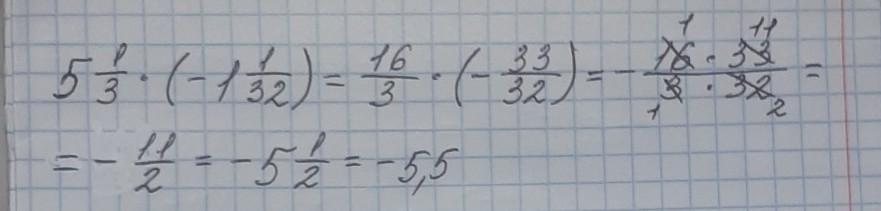 5 1/3 · (-1 1/32) = 16/3 · (-33/32) = - (16 · 33)/(3 · 32) =
= - 11/2 = -5 1/2 = -5,5